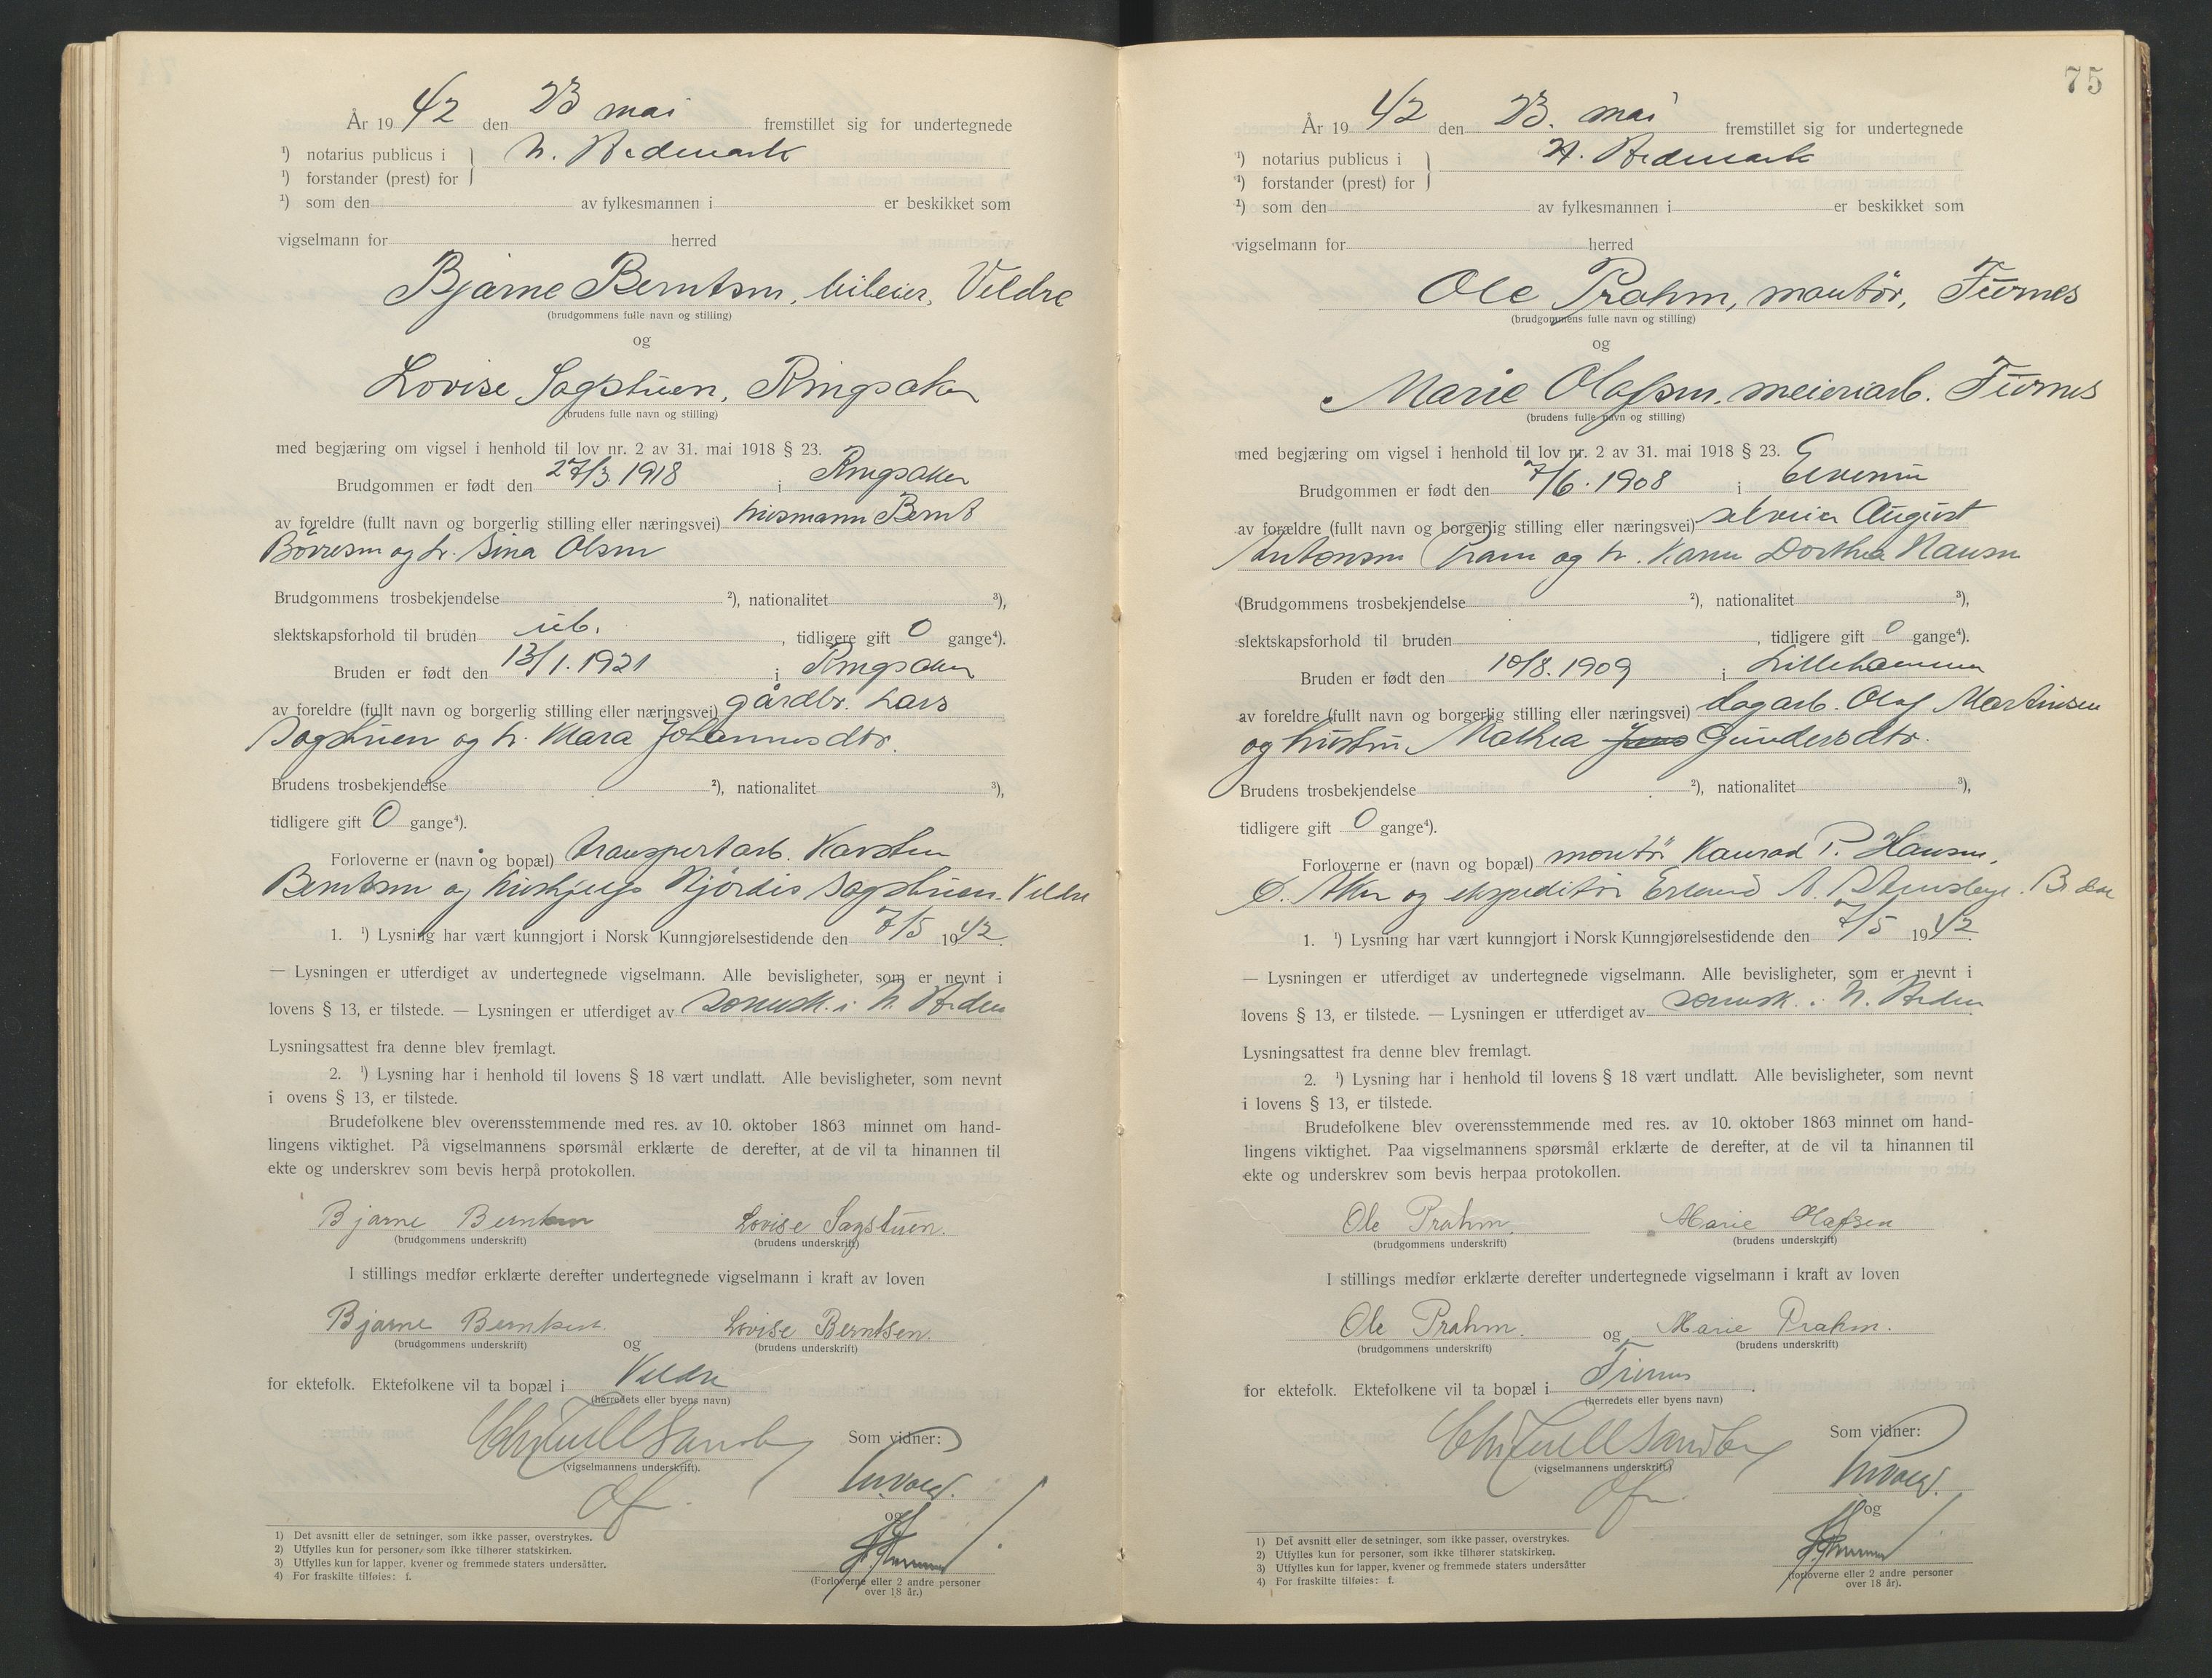 År 19 42 den 23 mai fremstillet sig for undertegnede
¹) notarius publicus i N. Hedemark
¹) forstander (prest) for
¹) som den av fylkesmannen i er beskikket som
vigselmann for herred
Bjarne Berntsen, bileier, Veldre
(brudgommens fulle navn og stilling)
og
Lovise Sagstuen, Ringsaker
(brudens fulle navn og stilling)
med begjæring om vigsel i henhold til lov nr. 2 av 31. mai 1918 § 23.
Brudgommen er født den 27/3. 1918 i Ringsaker
av foreldre (fullt navn og borgerlig stilling eller næringsvei) husmann Bernt
Børresen og h. Sina Olsen
Brudgommens trosbekjendelse ²), nationalitet ³),
slektskapsforhold til bruden ub. , tidligere gift 0 gange⁴).
Bruden er født den 13/1. 1921 i Ringsaker
av foreldre (fullt navn og borgerlig stilling eller næringsvei) gårdbr. Lars
Sagstuen og h. Mara Johannesdtr.
Brudens trosbekjendelse ²), nationalitet ³),
tidligere gift 0 gange⁴).
Forloverne er (navn og bopæl) transportarb. Karsten
Berntsen og Hjørdis Sagstuen. Veldre
1. ¹) Lysning har vært kunngjort i Norsk Kunngjørelsestidende den 7/5 1942.
— Lysningen er utferdiget av undertegnede vigselmann. Alle bevisligheter, som er nevnt i
lovens § 13, er tilstede. — Lysningen er utferdiget av sorensk. i N. Hedem
Lysningsattest fra denne blev fremlagt.
2. ¹) Lysning har i henhold til lovens § 18 vært undlatt. Alle bevisligheter, som nevnt
i ovens § 13, er tilstede.
Brudefolkene blev overensstemmende med res. av 10. oktober 1863 minnet om hand-
lingens viktighet. På vigselmannens spørsmål erklærte de derefter, at de vil ta hinannen til
ekte og underskrev som bevis herpå protokollen.
Bjarne Berntsen Lovise Sagstuen.
(brudgommens underskrift) (brudens underskrift)
I stillings medfør erklærte derefter undertegnede vigselmann i kraft av loven
Bjarne Berntsen. og Lovise Berntsen.
(brudgommens underskrift) (brudens underskrift)
for ektefolk. Ektefolkene vil ta bopæl i Veldre
(herredets eller byens navn)
Som vidner:
(vigselmannens underskrift).
og
1) Det avsnitt eller de setninger, som ikke passer, overstrykes.
2) Utfylles kun for personer, som ikke tilhører statskirken.
3) Utfylles kun for lapper, kvener og fremmede staters undersåtter.
4) For fraskilte tilføies: f.
(Forloverne eller 2 andre personer
over 18 år.)
75
År 19 42 den 23. mai fremstillet sig for undertegnede
¹) notarius publicus i N. Hedemark
¹) forstander (prest) for
¹) som den av fylkesmannen i er beskikket som
vigselmann for herred
Ole Prahm, montör, Furnes
(brudgommens fulle navn og stilling)
og
Marie Olafsen, meieriarb. Furnes
(brudens fulle navn og stilling)
med begjæring om vigsel i henhold til lov nr. 2 av 31. mai 1918 § 23.
Brudgommen er født den 7/6. 1908 i Elverum
av forældre (fullt navn og borgerlig stilling eller næringsvei) selveier August
Antonsen Pram og h. Karen Dorthea Hansen
(Brudgommens trosbekjendelse ²), nationalitet ³),
slektskapsforhold til bruden , tidligere gift 0 gange⁴).
Bruden er født den 10/8. 1909 i Lillehammer
av foreldre (fullt navn og borgerlig stilling eller næringsvei) dagarb. Olaf Martinsen
og hustru Mathea Gundersdtr.
Brudens trosbekjendelse ²), nationalitet ³),
tidligere gift 0 gange⁴).
Forloverne er (navn og bopæl) montör Konrad P. Hansen,
Ø. Aker og ekspeditör Erland A.
1. ¹) Lysning har vært kunngjort i Norsk Kunngjørelsestidende den 7/5 1942.
— Lysningen er utferdiget av undertegnede vigselmann. Alle bevisligheter, som er nevnt i
lovens § 13, er tilstede. — Lysningen er utferdiget av sorensk. i N. Hedem
Lysningsattest fra denne blev fremlagt.
2. ¹) Lysning har i henhold til lovens § 18 vært undlatt. Alle bevisligheter, som nevnt
i lovens § 13, er tilstede.
Brudefolkene blev overensstemmende med res. av 10. oktober 1863 minnet om hand-
lingens viktighet. Paa vigselmannens spørsmål erklærte de derefter, at de vil ta hinannen til
ekte og underskrev som bevis herpaa protokollen.
Ole Prahm. Marie Olafsen
(brudgommens underskrift) (brudens underskrift)
I stillings medfør erklærte derefter undertegnede vigselmann i kraft av loven
Ole Prahm. og Marie Prahm.
(brudgommens underskrift) (brudens underskrift)
for ektefolk. Ektefolkene vil ta bopæl i Furnes
(herredets eller byens navn)
Som vidner:
(vigselmannens underskrift.)
og
1) Det avsnitt eller de setninger, som ikke passer, overstrykes.
2) Utfylles kun for personer, som ikke tilhører statskirken.
3) Utfylles kun for lapper, kvener og fremmede staters undersåtter
4) For fraskilte tilføies: f.
(forloverne eller 2 andre personer
over 18 år).